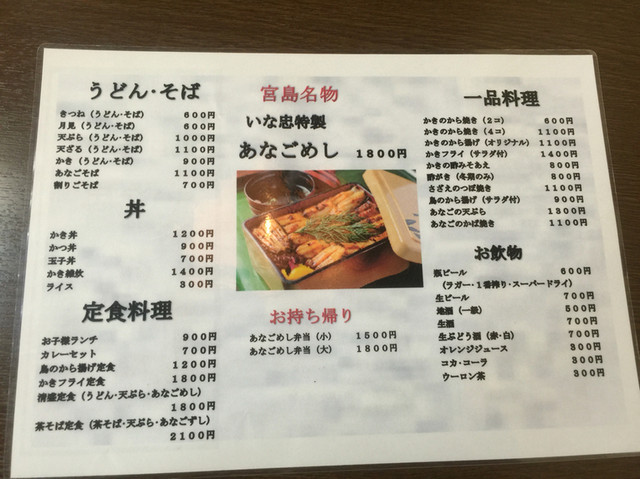 うどん・そば
きつね（うどん・そば） 600円
月見（うどん・そば） 600円
天ぷら（うどん・そば） 1000円
天ざる（うどん・そば） 1100円
かき（うどん・そば） 900円
あなごそば 1100円
割りごそば 700円
丼
かき丼 1200円
かつ丼 900円
玉子丼 700円
かき雑炊 1400円
ライス 300円
定食料理
お子様ランチ 900円
カレーセット 700円
鳥のから揚げ定食 1200円
かきフライ定食 1800円
清盛定食（うどん・天ぷら・あなごめし）
1800円
茶そば定食（茶そば・天ぷら・あなごずし）
2100円
宮島名物
いな忠特製
あなごめし 1800円
お持ち帰り
あなごめし弁当（小） 1500円
あなごめし弁当（大） 1800円
一品料理
かきのから焼き（2コ） 600円
かきのから焼き（4コ） 1100円
かきのから揚げ（オリジナル） 1100円
かきフライ（サラダ付） 1400円
かきの酢みそあえ 800円
酢がき（冬期のみ） 800円
さざえのつぼ焼き 1100円
鳥のから揚げ（サラダ付） 900円
あなごの天ぷら 1300円
あなごのかば焼き 1100円
お飲物
瓶ビール 600円
（ラガー・1番搾り・スーパードライ）
生ビール 700円
地酒（一級） 500円
生酒 700円
生ぶどう酒（赤・白） 700円
オレンジジュース 300円
コカ・コーラ 300円
ウーロン茶 300円